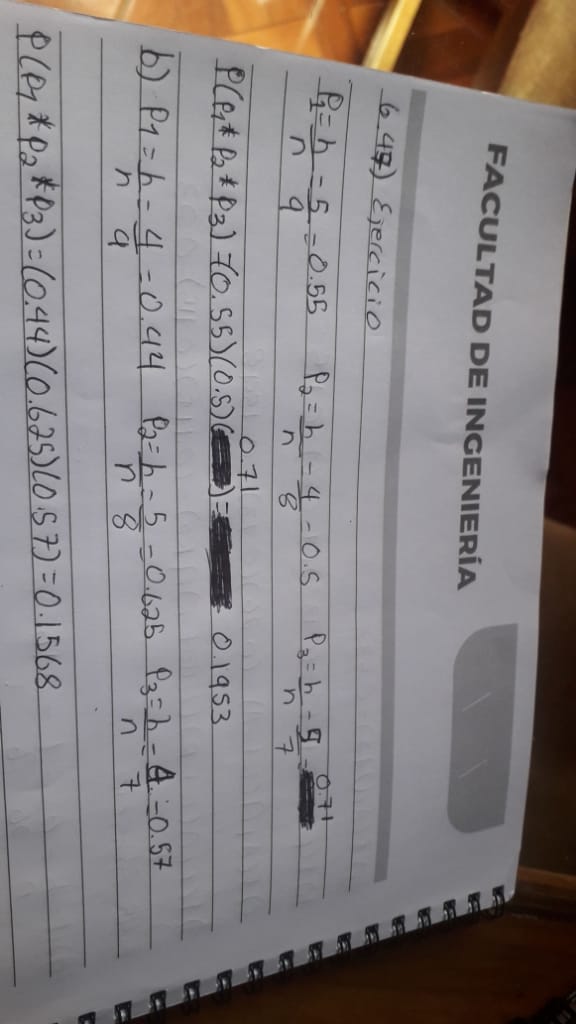 FACULTAD DE INGENIERÍA
6.47) Ejercicio
P1 = h/n = 5/9 = 0.55 P2 = h/n = 4/8 = 0.5 P3 = h/n = 5/7 = 0.71
P(P1 * P2 * P3) = (0.55)(0.5)(0.71) = 0.1953
b) P1 = h/n = 4/9 = 0.44 P2 = h/n = 5/8 = 0.625 P3 = h/n = 4/7 = 0.57
P(P1 * P2 * P3) = (0.44)(0.625)(0.57) = 0.1568